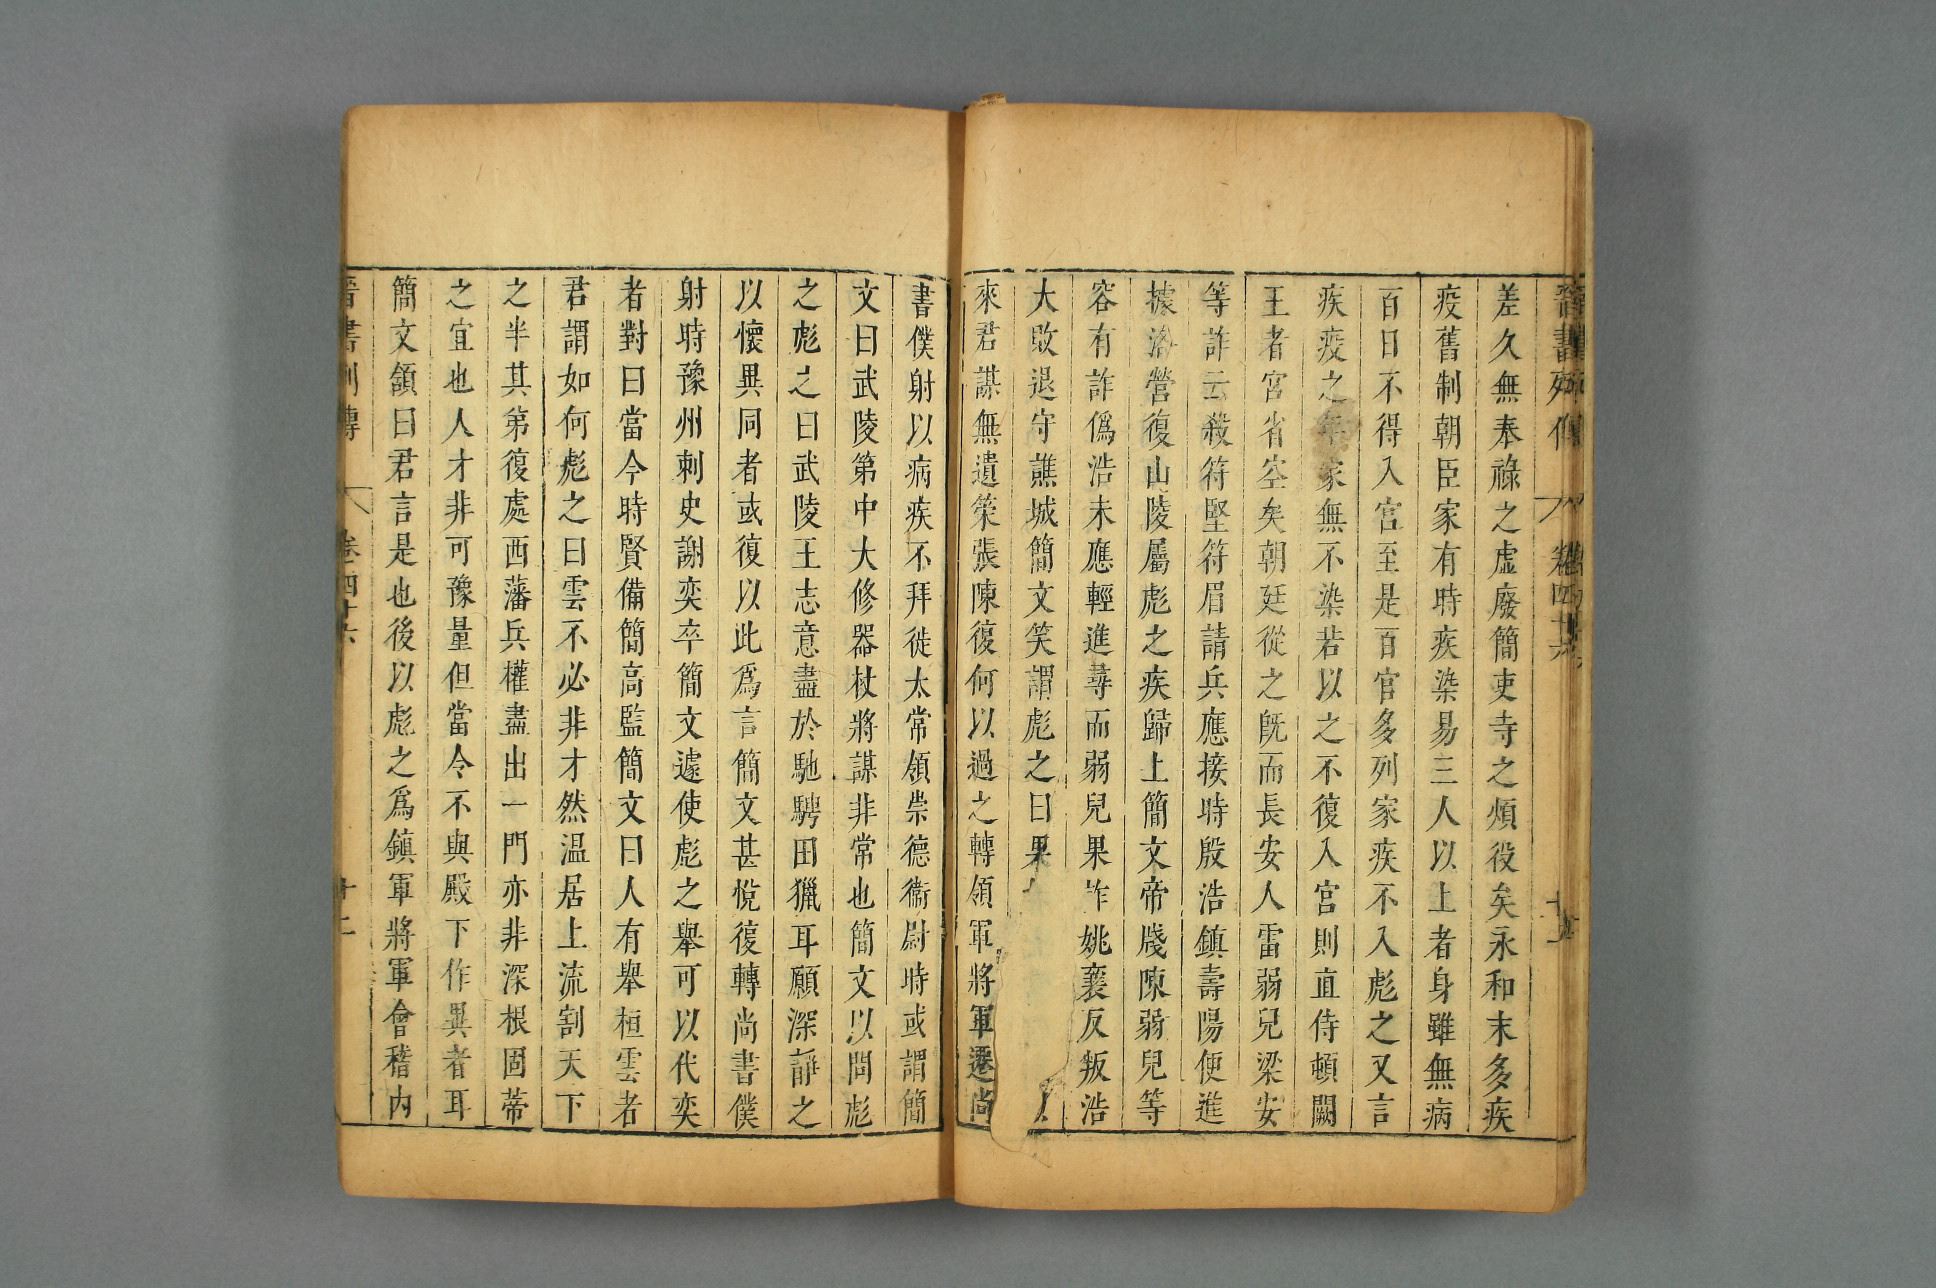 晉書列傳 卷四十六
差久無奉祿之虛廢簡吏寺之煩役矣永和末多疾
疫舊制朝臣家有時疾染易三人以上者身雖無病
百日不得入宮至是百官多列家疾不入彪之又言
疾疫之年家無不染若以之不復入宮則直侍頓闕
王者宮省空矣朝廷從之旣而長安人雷弱兒梁安
等詐云殺符堅符眉請兵應接時殷浩鎮壽陽便進
據洛營復山陵屬彪之疾歸上簡文帝牋陳弱兒等
容有詐僞浩未應輕進尋而弱兒果詐姚襄反叛浩
大敗退守譙城簡文笑謂彪之曰果
來君謀無遺策張陳復何以過之轉領軍將軍遷尚
書僕射以病疾不拜徙太常領崇德衞尉時或謂簡
文曰武陵第中大修器杖將謀非常也簡文以問彪
之彪之曰武陵王志意盡於馳騁田獵耳願深靜之
以懷異同者或復以此爲言簡文甚悅復轉尚書僕
射時豫州刺史謝奕卒簡文遽使彪之舉可以代奕
者對曰當今時賢備簡高監簡文曰人有舉桓雲者
君謂如何彪之曰雲不必非才然温居上流割天下
之半其第復處西藩兵權盡出一門亦非深根固蒂
之宜也人才非可豫量但當令不與殿下作異者耳
簡文頷曰君言是也後以彪之爲鎮軍將軍會稽內
晉書列傳 卷四十六 十二